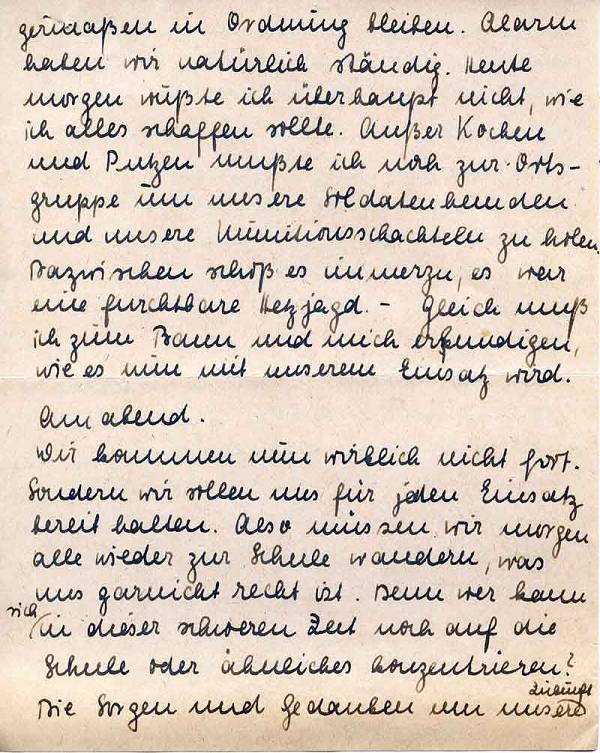 germaßen in Ordnung bleiben. Alarm
haben wir natürlich ständig. Heute
morgen wußte ich überhaupt nicht, wie
ich alles schaffen sollte. Außer Kochen
und Putzen mußte ich noch zur Orts-
gruppe um unsere Soldatenhemden
und unsere Munitionsschachteln zu holen.
Dazwischen schoß es immerzu, es war
eine furchtbare Hetzjagd. - Gleich muß
ich zum Bann und mich erkundigen,
wie es nun mit unserem Einsatz wird.
Am abend.
Wir kommen nun wirklich nicht fort.
Sondern wir sollen uns für jeden Einsatz
bereit halten. Also müssen wir morgen
alle wieder zur Schule wandern, was
uns garnicht recht ist. Denn wer kann
sich in dieser schweren Zeit noch auf die
Schule oder ähnliches konzentrieren?
Die Sorgen und Gedanken um unsere Zukunft